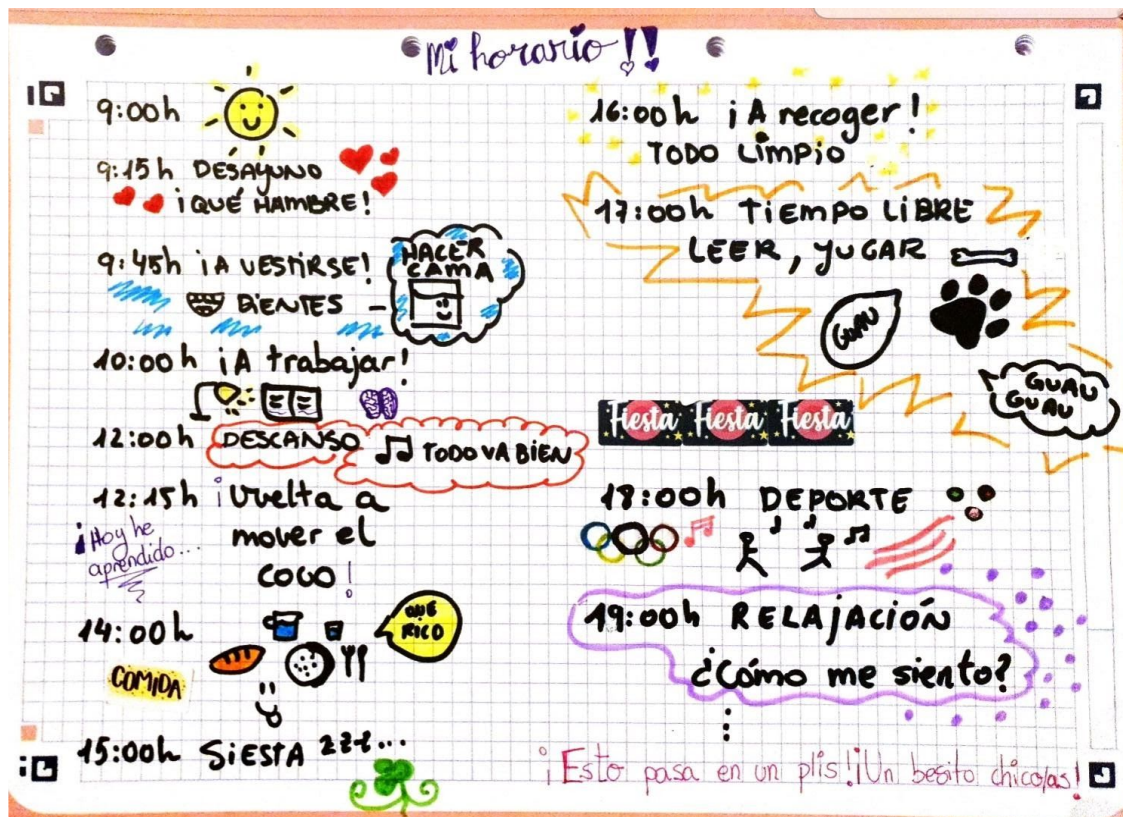 Mi horario!!
9:00h
9:15h DESAYUNO
¡QUÉ HAMBRE!
9:45h ¡A VESTIRSE!
DIENTES -
HACER
CAMA
10:00h ¡A trabajar!
12:00h DESCANSO
TODO VA BIEN
12:15h ¡Vuelta a
mover el
coco!
¡Hoy he
aprendido...
14:00h
QUE
RICO
COMIDA
15:00h SIESTA zzz...
16:00h ¡A recoger!
TODO LIMPIO
17:00h TIEMPO LIBRE
LEER, YUGAR
GUAU
GUAU
GUAU
Fiesta Fiesta Fiesta
18:00h DEPORTE
19:00h RELAJACIÓN
¿Cómo me siento?
¡Esto pasa en un plis! ¡Un besito chico/as!